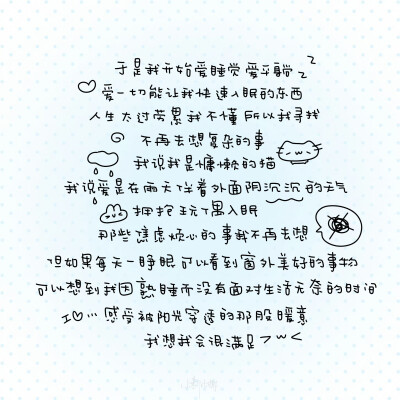 于是我开始爱睡觉 爱平躺 z z
爱一切能让我快速入眠的东西
人生太过劳累 我不懂 所以我寻找
不再去想复杂的事
我说我是慵懒的猫
我说爱是在雨天伴着外面阴沉沉的天气
拥抱玩偶入眠
那些焦虑烦心的事我不再去想
但如果每天一睁眼可以看到窗外美好的事物
可以想到我因熟睡而没有面对生活无奈的时间
感受被阳光穿透的那股暖意
我想我会很满足 > w <